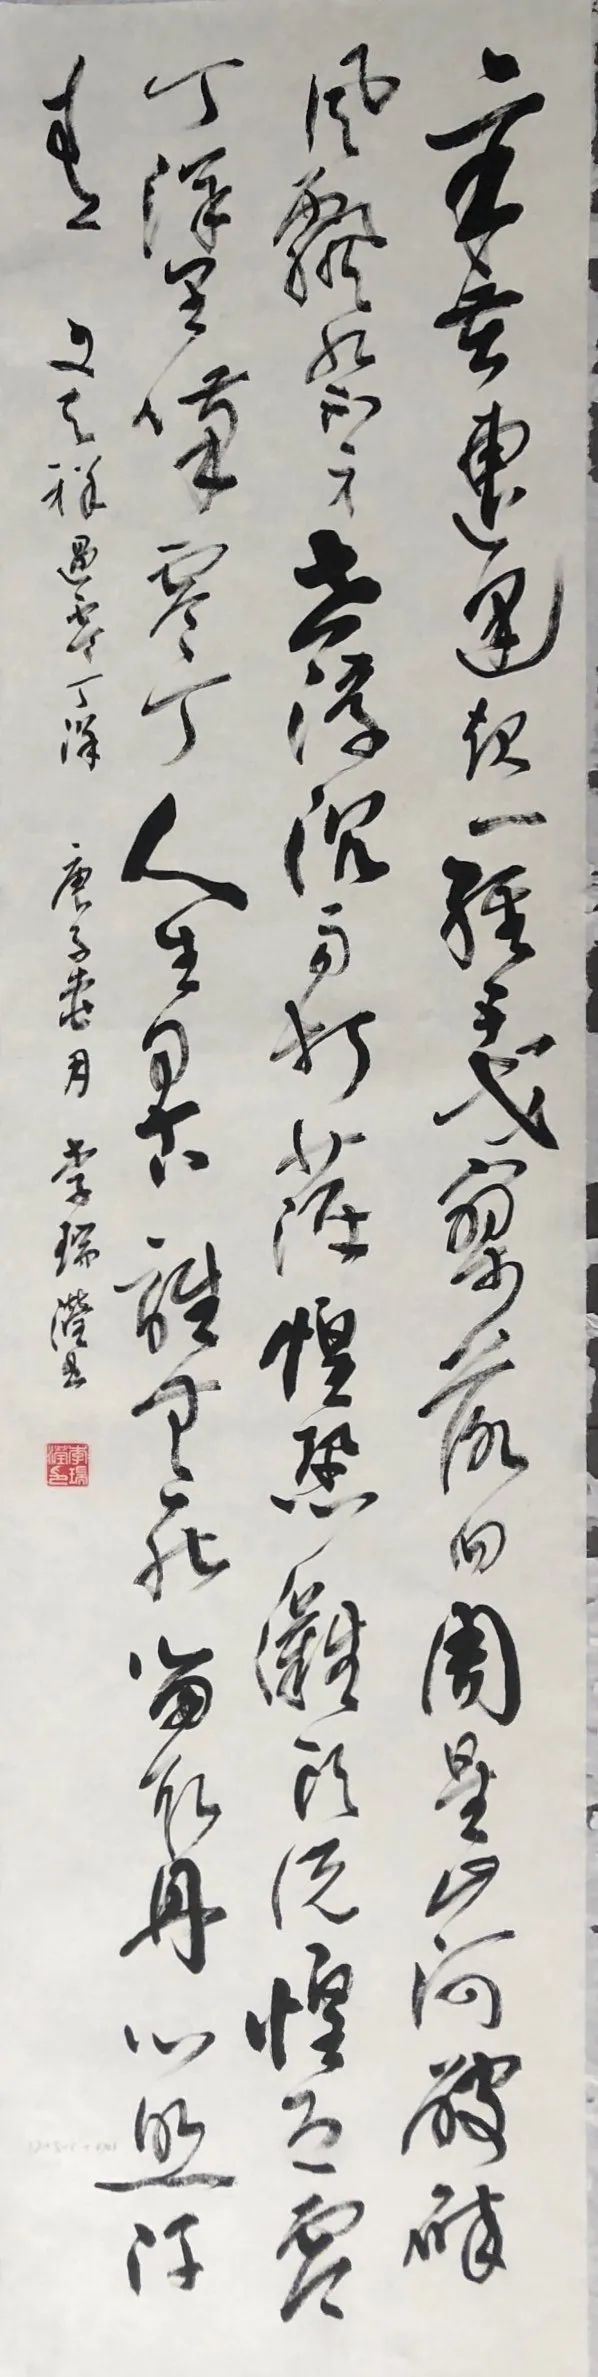 辛苦遭逢起一經干戈寥落四周星山河破碎
風飄絮身世浮沉雨打萍惶恐灘頭說惶恐零
丁洋里嘆零丁人生自古誰無死留取丹心照汗
青 文天祥過零丁洋 庚子春月 李瑞瀅书
李瑞瀅印